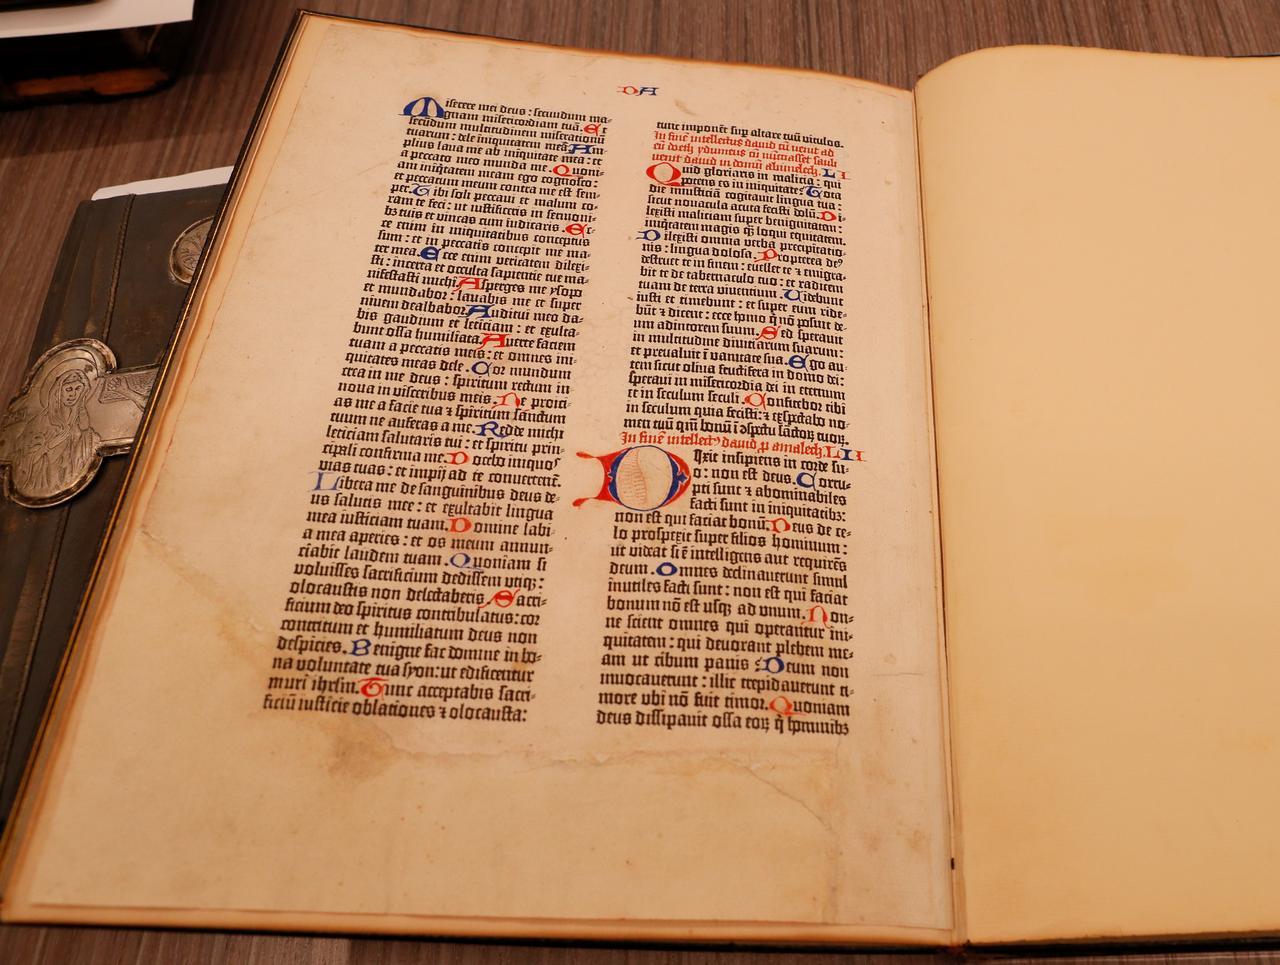 DA
Miserere mei deus : secundum ma⸗
gnam misericordiam tuā. Et
secūdum multitudinem miserationū
tuarum : dele iniquitatem meā. Am⸗
plius lava me ab iniquitate mea : et
a peccato meo munda me. Quoni⸗
am iniq̄tatem meam ego cognosco :
et peccatum meum contra me est sem⸗
per. Tibi soli peccavi et malum co⸗
ram te feci : ut iustificeris in sermoni⸗
bꝫ tuis et vincas cum iudicaris. Ec⸗
ce enim in iniquitatibus conceptus
sum : et in peccatis concepit me ma⸗
ter mea. Ecce enim veritatem dilexi⸗
sti : incerta et occulta sapientie tue ma⸗
nifestasti michi. Asperges me ysopo
et mundabor : lavabis me et super
nivem dealbabor. Auditui meo da⸗
bis gaudium et leticiam : et exulta⸗
bunt ossa humiliata. Averte faciem
tuam a peccatis meis : et omnes ini⸗
quitates meas dele. Cor mundum
crea in me deus : spiritum rectum in⸗
nova in visceribus meis. Ne proici⸗
as me a facie tua ⁊ spiritum sanctum
tuum ne auferas a me. Redde michi
leticiam salutaris tui : et spiritu prin⸗
cipali confirma me. Docebo iniquos
vias tuas : et impij ad te convertent̄.
Libera me de sanguinibus deus de⸗
us salutis mee : et exultabit lingua
mea iusticiam tuam. Domine labi⸗
a mea aperies : et os meum annun⸗
ciabit laudem tuam. Quoniam si
voluisses sacrificium dedissem utiqꝫ :
olocaustis non delectaberis. Sacri⸗
ficium deo spiritus contribulatus : cor
contritum et humiliatum deus non
despicies. Benigne fac domine in bo⸗
na voluntate tua syon : ut edificentur
muri ihrl̄m. Tunc acceptabis sacri⸗
ficiū iusticie oblationes ⁊ olocausta :
tunc imponēt sup altare tuū vitulos.
In finē intellectus david cū venit ad
cū doech ydumeus et nūciasset sauli
venit david in domū abimelech. LI
Quid gloriaris in malicia : qui
potens es in iniquitate? Tota
die iniusticiā cogitavit lingua tua :
sicut novacula acuta fecisti dolū. Di⸗
lexisti maliciam super benignitatem :
iniq̄tatem magis q̄ȝ loqui equitatem.
Dilexisti omnia verba precipitatio⸗
nis : lingua dolosa. Propterea de⁹
destruet te in finem : evellet te ⁊ emigra⸗
bit te de tabernaculo tuo : et radicem
tuam de terra viventium. Videbunt
iusti et timebunt : et super eum ride⸗
būt ⁊ dicent : ecce homo q̄ nō posuit de⸗
um adiutorem suum. Sed speravit
in multitudine divitiarum suarum :
et prevaluit ī vanitate sua. Ego au⸗
tem sicut oliva fructifera in domo dei :
speravi in misericordia dei in eternum
et in seculum seculi. Confitebor tibi
in seculum quia fecisti : ⁊ exspectabo no⸗
men tuū qm̄ bonū ī ↄspectu sāctoꝝ tuoꝝ.
In finē intellect⁹ david p̄ amalech. LII
Dixit insipiens in corde su⸗
o : non est deus. Corru⸗
pti sunt ⁊ abominabiles
facti sunt in iniquitatibꝫ :
non est qui faciat bonū. Deus de ce⸗
lo prospexit super filios hominum :
ut videat si ē intelligens aut requirēs
deum. Omnes declinaverunt simul
inutiles facti sunt : non est qui faciat
bonum nō est usqꝫ ad unum. Non⸗
ne scient omnes qui operantur ini⸗
quitatem : qui devorant plebem me⸗
am ut cibum panis? Deum non
invocaverunt : illic trepidaverunt ti⸗
more ubi nō fuit timor. Quoniam
deus dissipavit ossa eoꝝ q̄ hominibꝫ